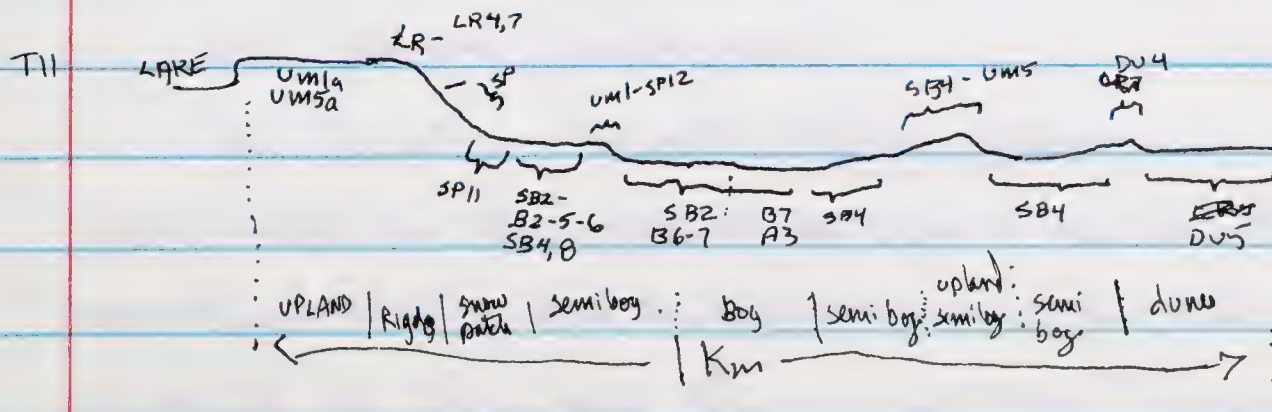 LR - LR4,7
T11 LAKE um1a
um5a
SP
um1-SP12
SB4 - um5
DU4
SP11
SB2-
B2-5-6
SB4,8
SB2:
B6-7
B7
A3
SB4
SB4
DU5
UPLAND | Ridge | snow patch | semibog : Bog | semi bog : upland : semibog : semi bog | dunes
1 Km